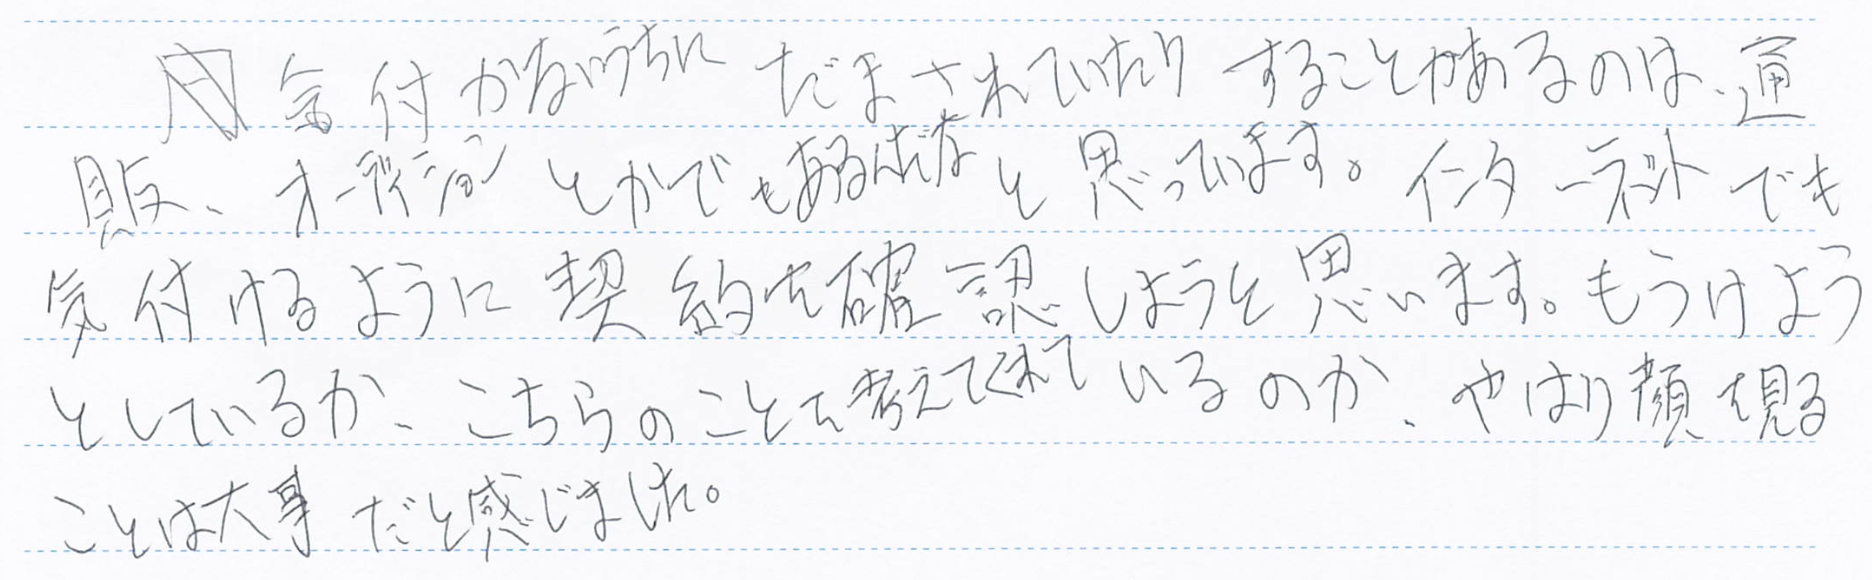 気付かないうちにだまされていたりすることがあるのは、通
販、オーディションとかでもあるんだなと思っています。インターネットでも
気付けるように契約を確認しようと思います。もうけよう
としているか、こちらのことを考えてくれているのか、やはり顔を見る
ことは大事だと感じました。